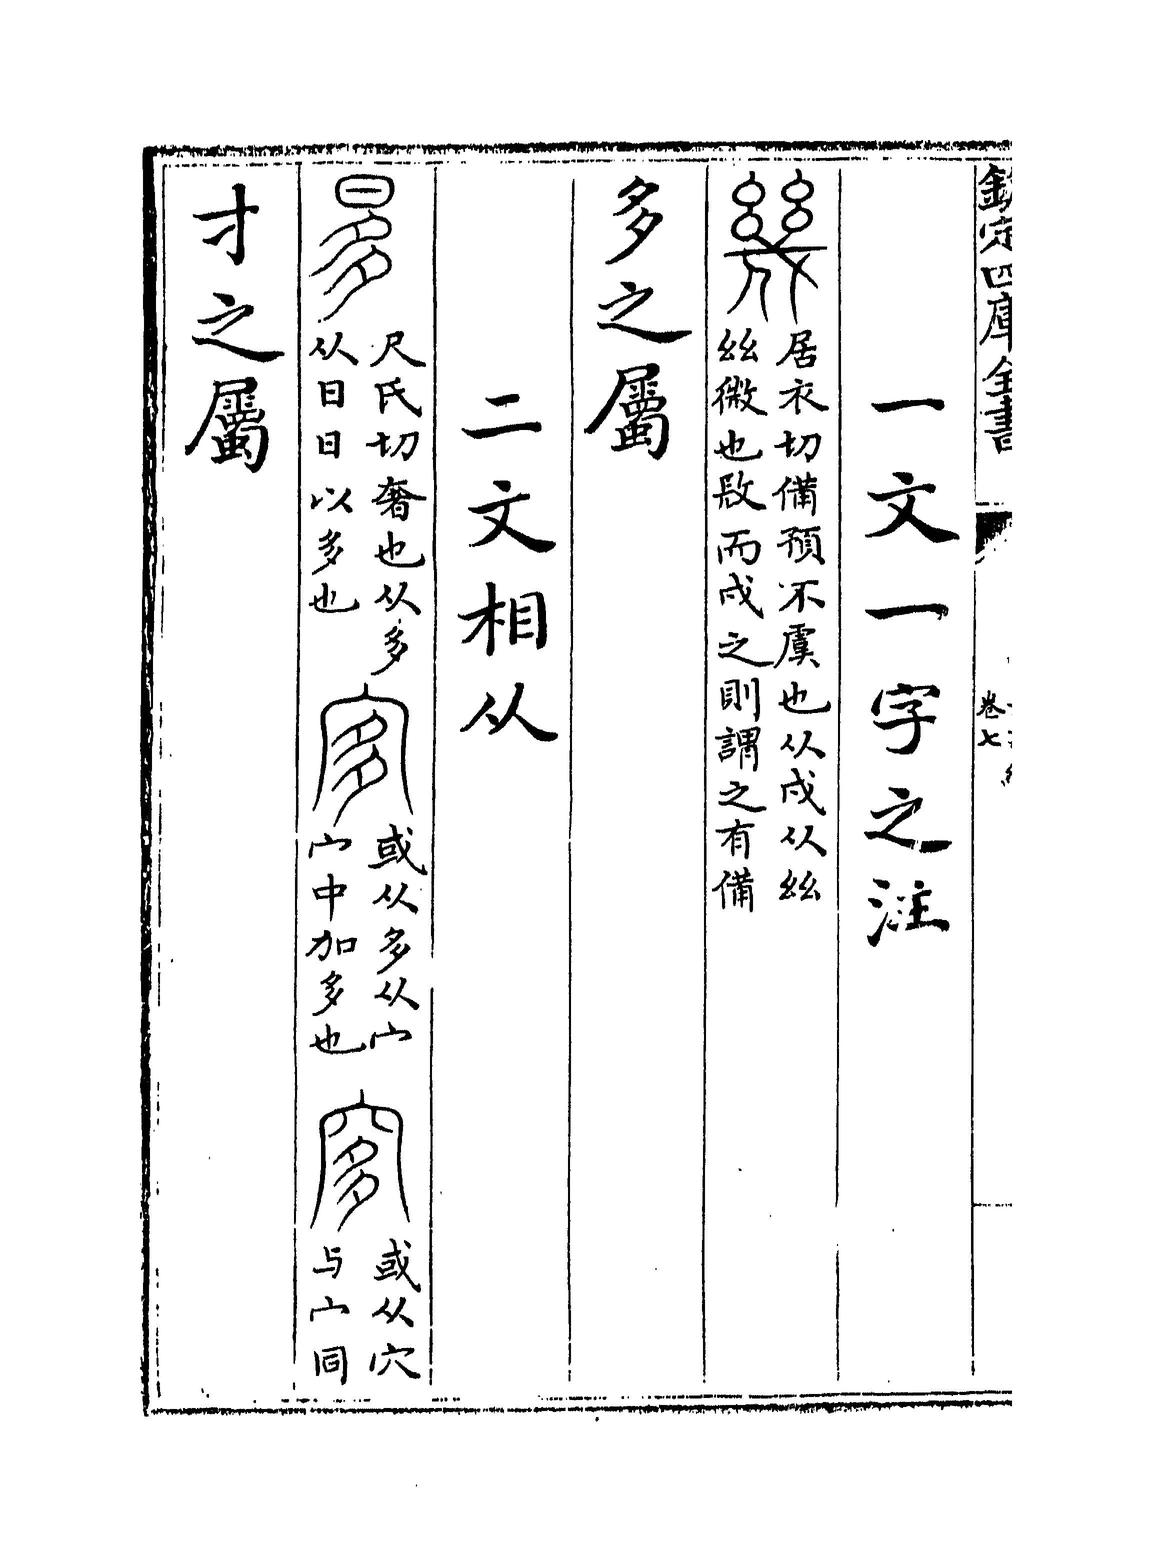 欽定四庫全書
卷七
一文一字之注
幾
居衣切備預不虞也从戍从𢆶
𢆶微也而戍之則謂之有備
多之屬
二文相从
尺氏切奢也从多
从日日以多也
或从多从宀
宀中加多也
或从穴
与宀同
才之屬